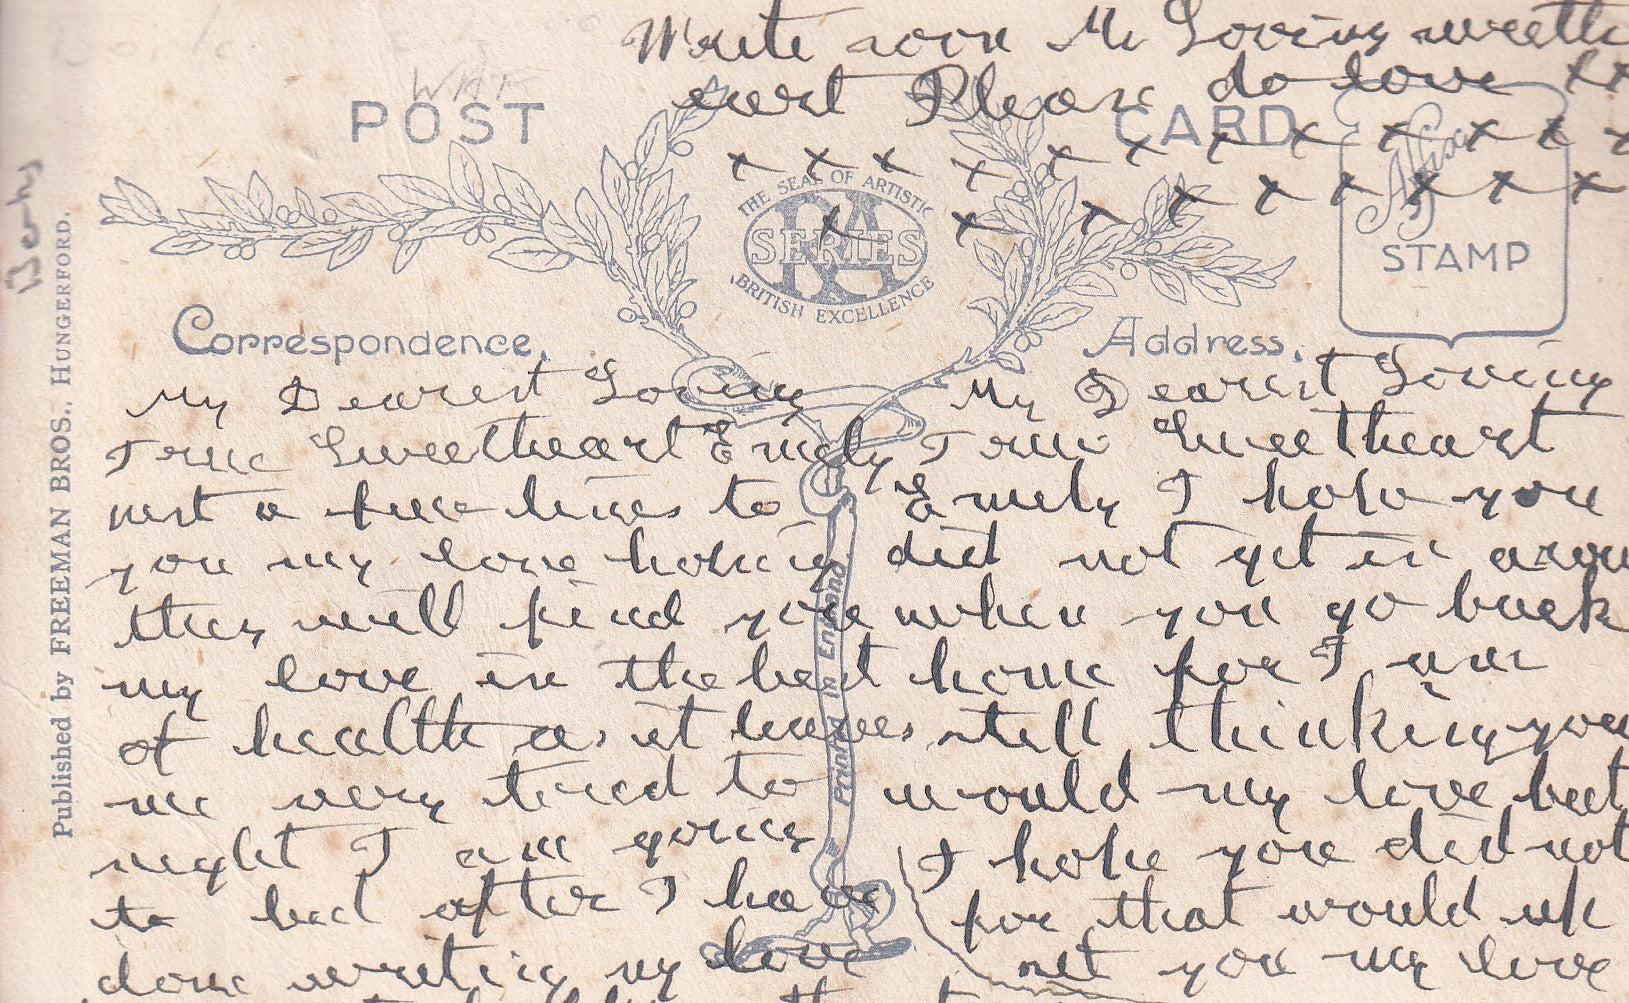 Write soon My Loving sweethe
eart Please do love xx
x x x x x x x x x x x x
x x x x x x
x x
WAR
POST CARD
Affix
STAMP
THE SEAL OF ARTISTIC
RA
SERIES
BRITISH EXCELLENCE
Berhy
Published by FREEMAN BROS., HUNGERFORD.
Printed in England
Correspondence.
My Dearest Loving
True Sweetheart Emely
just a few lines to
you my love hoping
they will find you
my love in the best
of health as it leaves
me very tired to
night I am going
to bed after I have
done writing my love
Address.
My Dearest Loving
True Sweetheart
Emely I hope you
did not get in a row
when you go back
home for I am
still thinking you
would my love but
I hope you did not
for that would up
set you my love